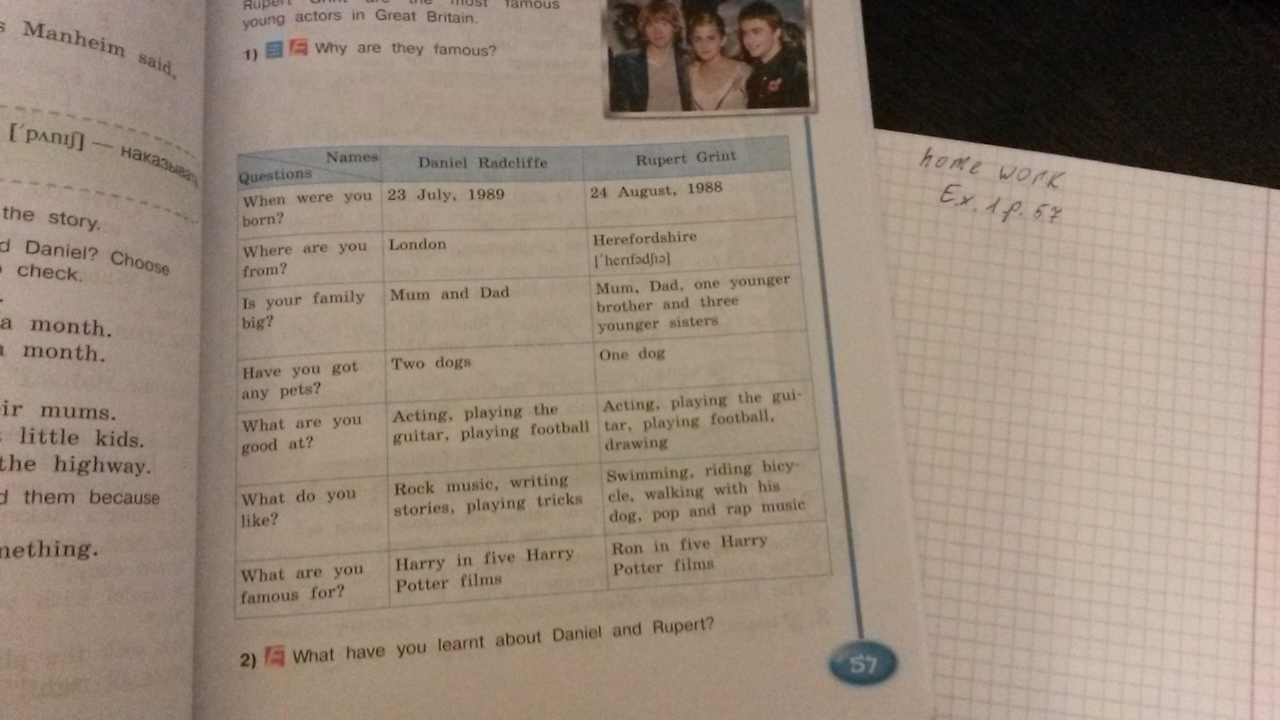 s Manheim said,
[ˈpʌnɪʃ] — наказывать
the story.
d Daniel? Choose
check.
a month.
month.
ir mums.
little kids.
the highway.
d them because
nething.
Rupert Grint are the most famous
young actors in Great Britain.
1) E Why are they famous?
Names
Questions
Daniel Radcliffe
Rupert Grint
When were you
born?
23 July, 1989
24 August, 1988
Where are you
from?
London
Herefordshire
[ˈherɪfədʃɪə]
Is your family
big?
Mum and Dad
Mum, Dad, one younger
brother and three
younger sisters
Have you got
any pets?
Two dogs
One dog
What are you
good at?
Acting, playing the
guitar, playing football
Acting, playing the gui-
tar, playing football,
drawing
What do you
like?
Rock music, writing
stories, playing tricks
Swimming, riding bicy-
cle, walking with his
dog, pop and rap music
What are you
famous for?
Harry in five Harry
Potter films
Ron in five Harry
Potter films
2) E What have you learnt about Daniel and Rupert?
57
home work
Ex. 1 p. 57